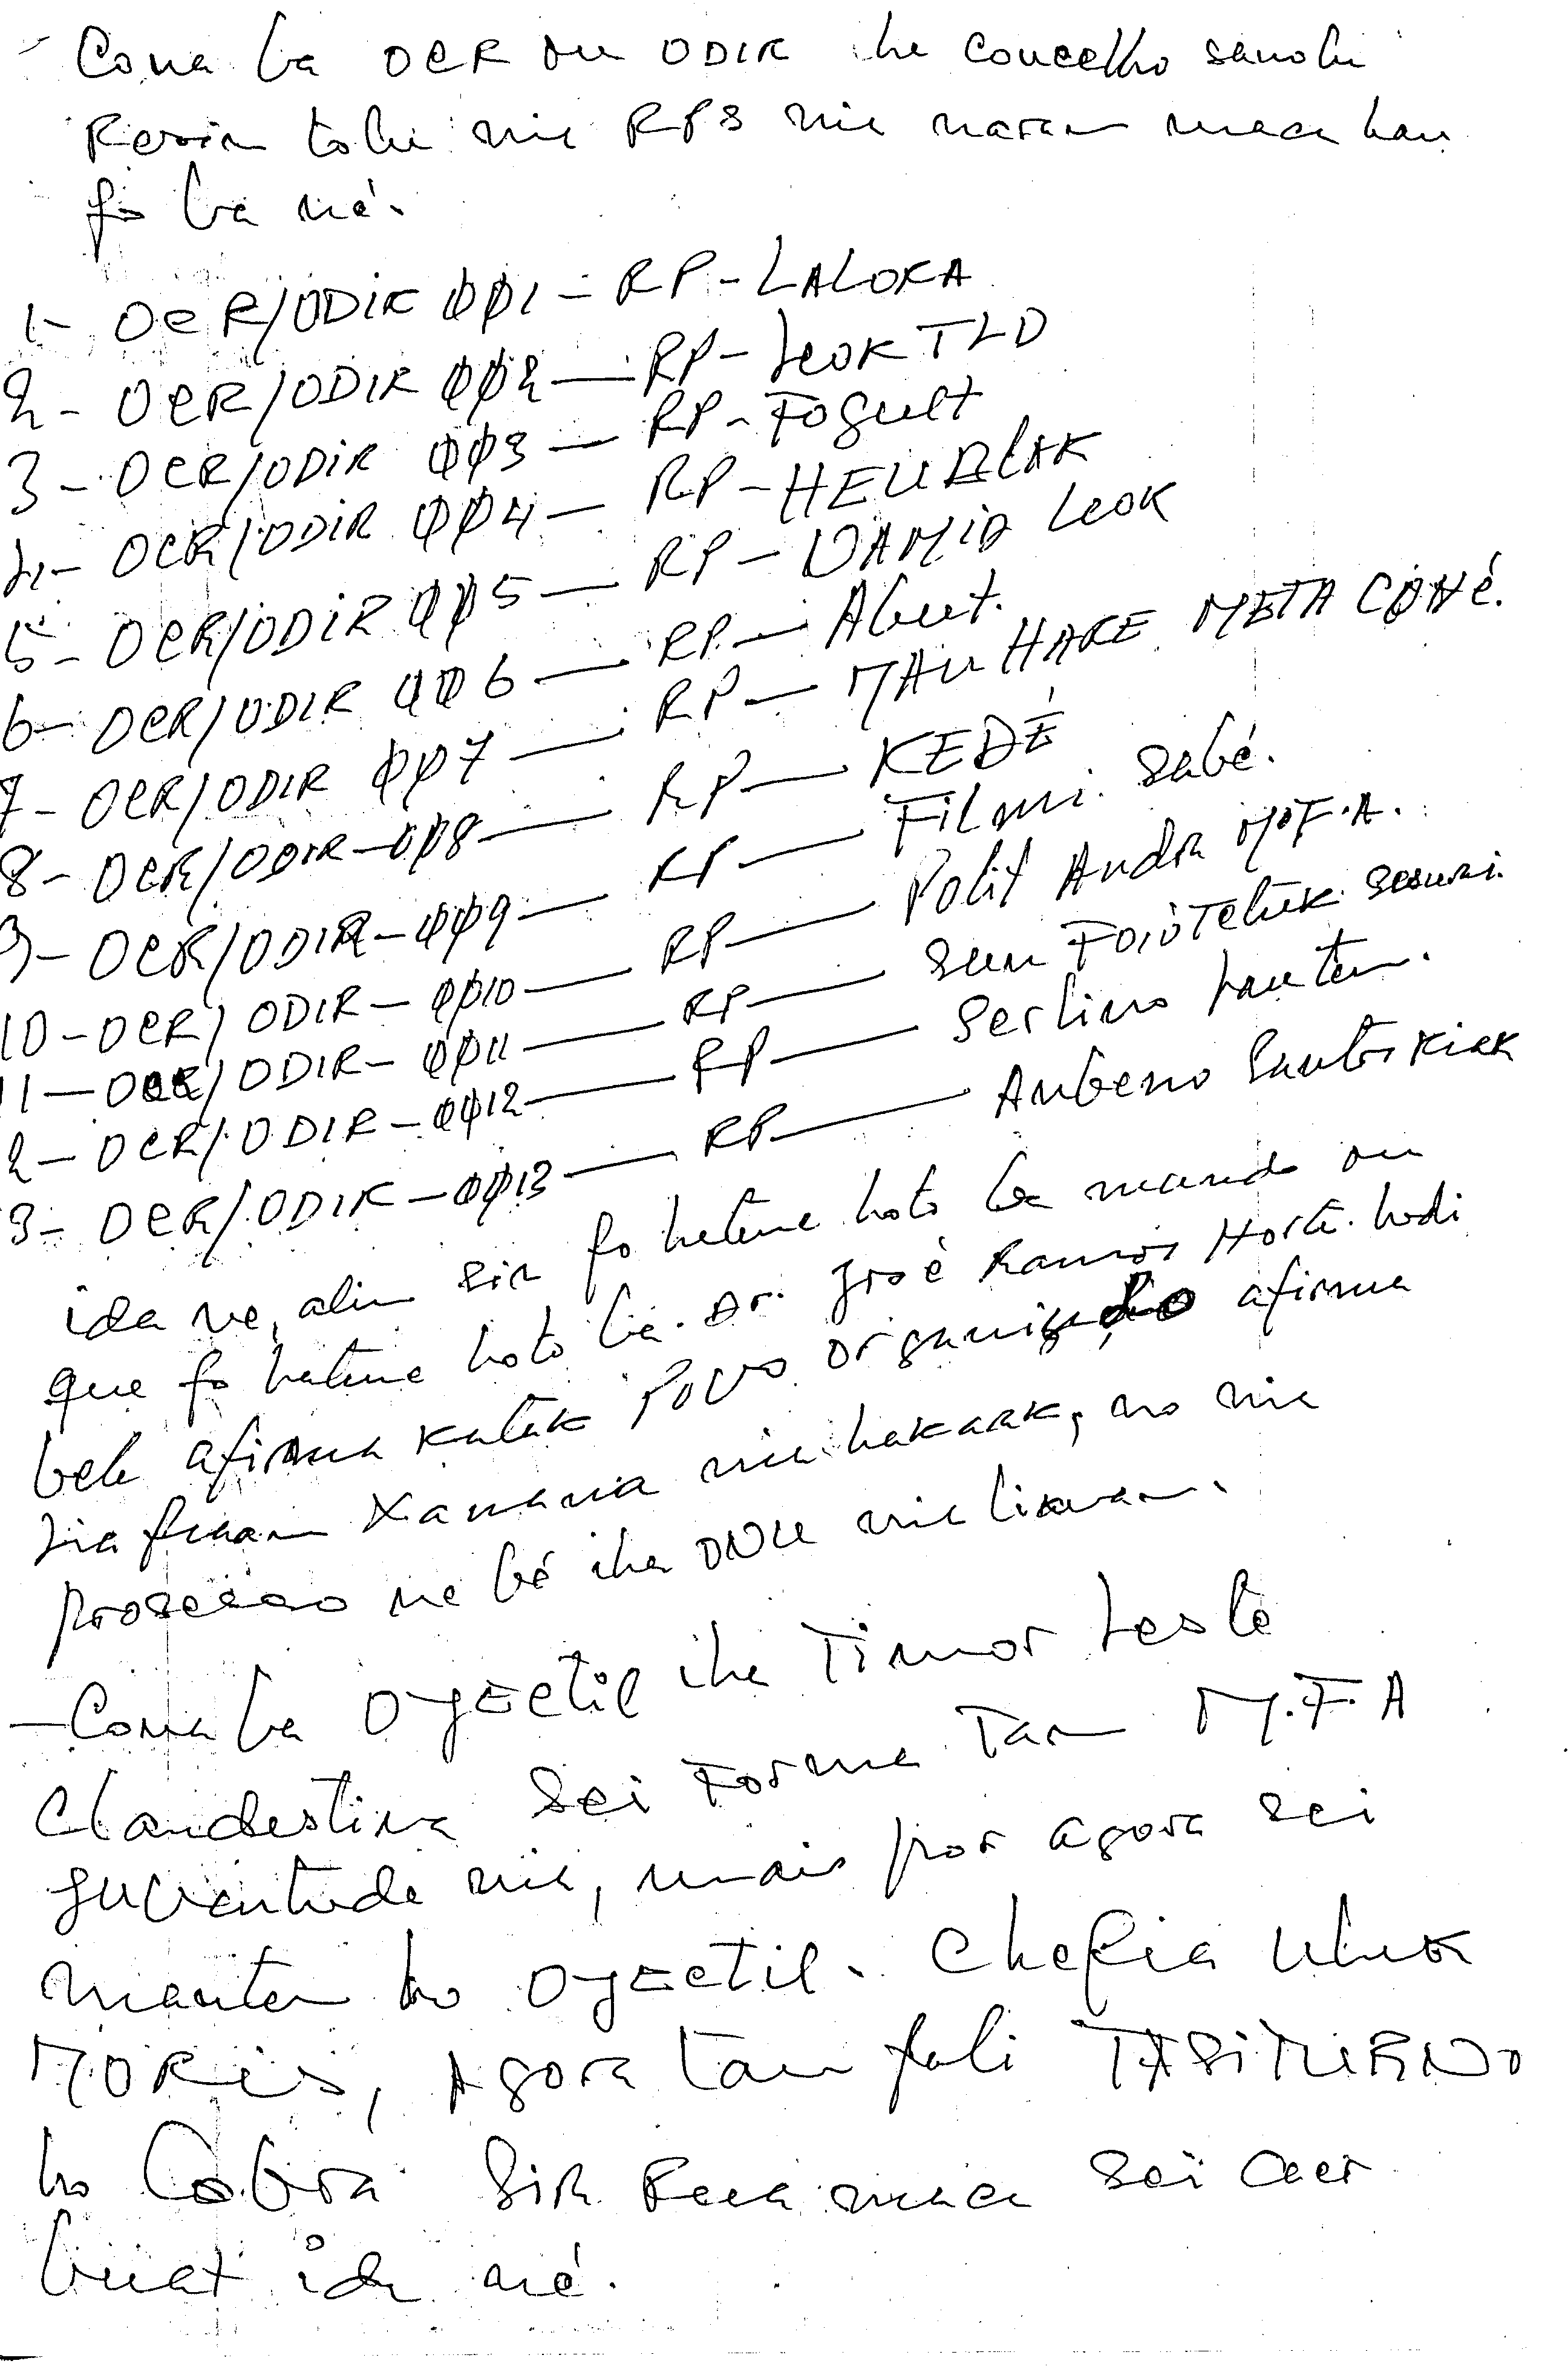 Cona ba OCR ou ODIR iha concelho sanolu
Resin tolu nia RPS nia naran maca hau
fo ba né.
1- OCR/ODIR 001 - RP - LALOKA
2- OCR/ODIR 002 - RP - LEOK TLD
3- OCR/ODIR 003 - RP - Foguet
4- OCR/ODIR 004 - RP - HEUBLAK
5- OCR/ODIR 005 - RP - DAMID LEOK
6- OCR/ODIR 006 - RP - Abut.
7- OCR/ODIR 007 - RP - MAU HARE META CONÉ.
8- OCR/ODIR - 008 - RP - KEDÉ
9- OCR/ODIR - 009 - RP - Filmi Sabé.
10- OCR/ODIR - 0010 - RP - Polit Andra M.F.A.
11- OCR/ODIR - 0011 - RP - San
2- OCR/ODIR - 0012 - RP - Serlino Lauten.
3- OCR/ODIR - 0013 - RP - Anbeno
ida ne, alin sira fo hatene hoto ba maudo ou
que fo hatene hoto ba Dr. José Ramos Horta hodi
bele afirma katak Povo organizado afirma
lia fuan Xanana nia hakaak, no nia
prosesso ne bé iha ONU nia liman.
- Cona ba OJECTIL iha Timor Leste
Clandestina sei Forma Tan M.F.A
Juventude nia, mais por agora sei
manten ho OJECTIL. Chefia uluk
MORIS, Agora tau fali TASIMERNO
ho Cobra Sira Rua maca sei caer
buat ida né.